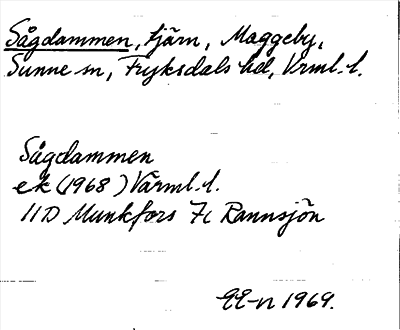 Sågdammen, tjärn, Maggeby,
Sunne sn, Fryksdals hd, Vrml. l.
Sågdammen
ek (1968) Värml. l.
11D Munkfors 7c Rannsjön
1969.